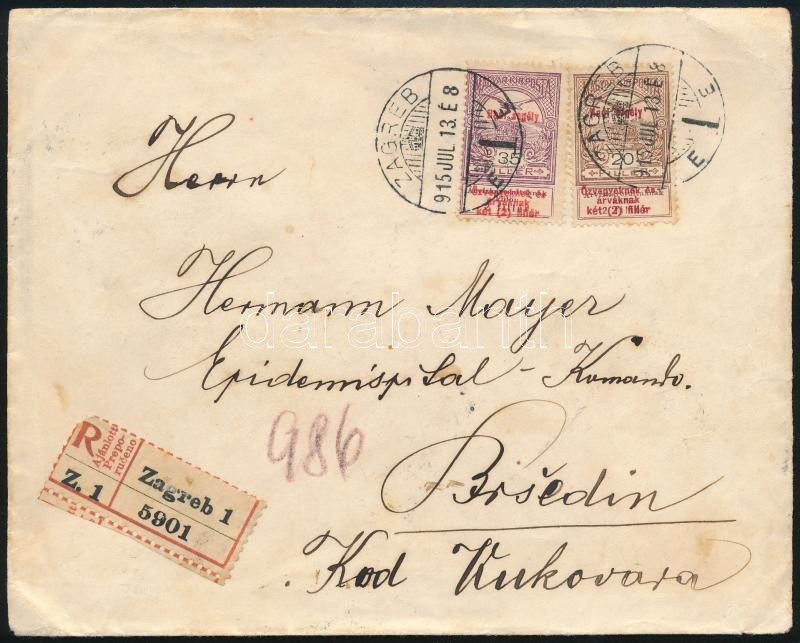 ZAGREB
915 JUL 13. É 8
MAGYAR KIR. POSTA
Hadi segély
35
FILLÉR
Özvegyeknek és
árváknak
két (2) fillér
MAGYAR KIR. POSTA
Hadi segély
20
Özvegyeknek és
árváknak
két (2) fillér
ZAGREB
Herrn
Hermann Mayer
Epidemispital - Komando.
986
Bršedin
Kod Vukovara
R
Ajánlott
Prepo-
ručeno
Z. 1
Zagreb 1
5901
darabanth